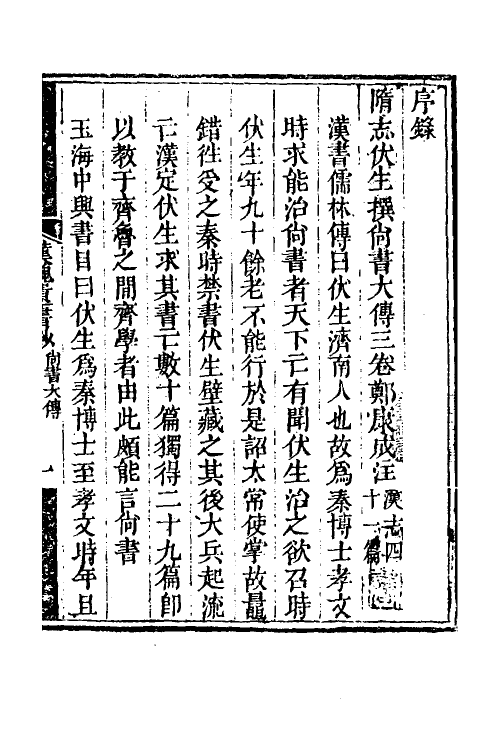 序錄
隋志伏生撰尚書大傳三卷鄭康成注漢志四十一篇
漢書儒林傳曰伏生濟南人也故爲秦博士孝文
時求能治尚書者天下亡有聞伏生治之欲召時
伏生年九十餘老不能行於是詔太常使掌故鼂
錯往受之秦時禁書伏生壁藏之其後大兵起流
亡漢定伏生求其書亡數十篇獨得二十九篇卽
以教于齊魯之閒齊學者由此頗能言尚書
玉海中興書目曰伏生爲秦博士至孝文時年且
漢魏遺書鈔 尚書大傳 一